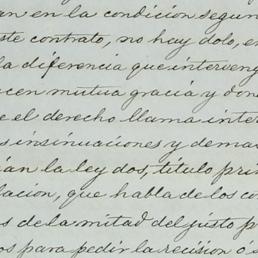 an en la condición segun
ste contrato, no hay dolo, e
la diferencia que interveng
cen mutua gracia y don
e el derecho llama inter
s insinuaciones y dema
ían la ley dos, título prim
lacion, que habla de los co
s de la mitad del justo p
os para pedir la recision ó s